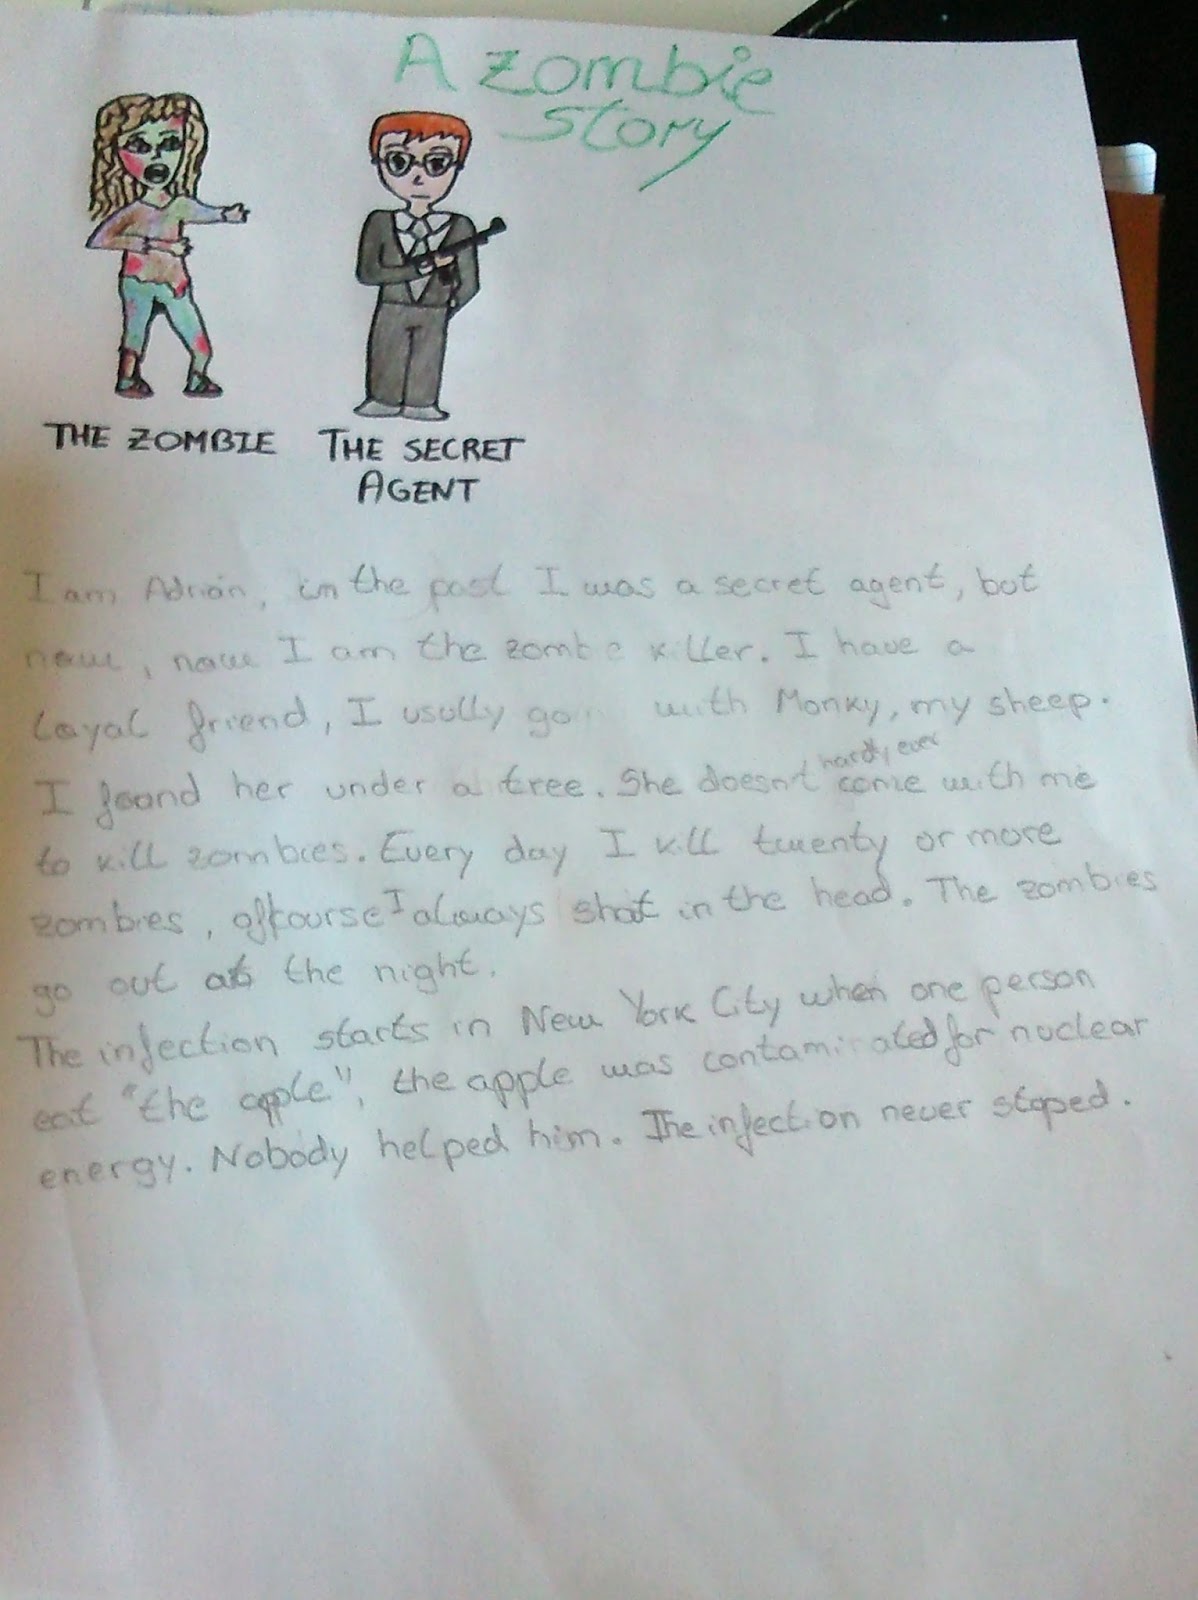 A zombie
story
THE ZOMBIE
THE SECRET
AGENT
I am Adrián, in the past I was a secret agent, bot
now, now I am the zombie killer. I have a
loyal friend, I usully go with Monky, my sheep.
I foand her under a tree. She doesn't hardly ever come with me
to kill zombies. Every day I kill twenty or more
zombies, offcourse I always shot in the head. The zombies
go out at the night.
The infection starts in New York City when one person
eat "the apple", the apple was contaminated for nuclear
energy. Nobody helped him. The infection never stoped.